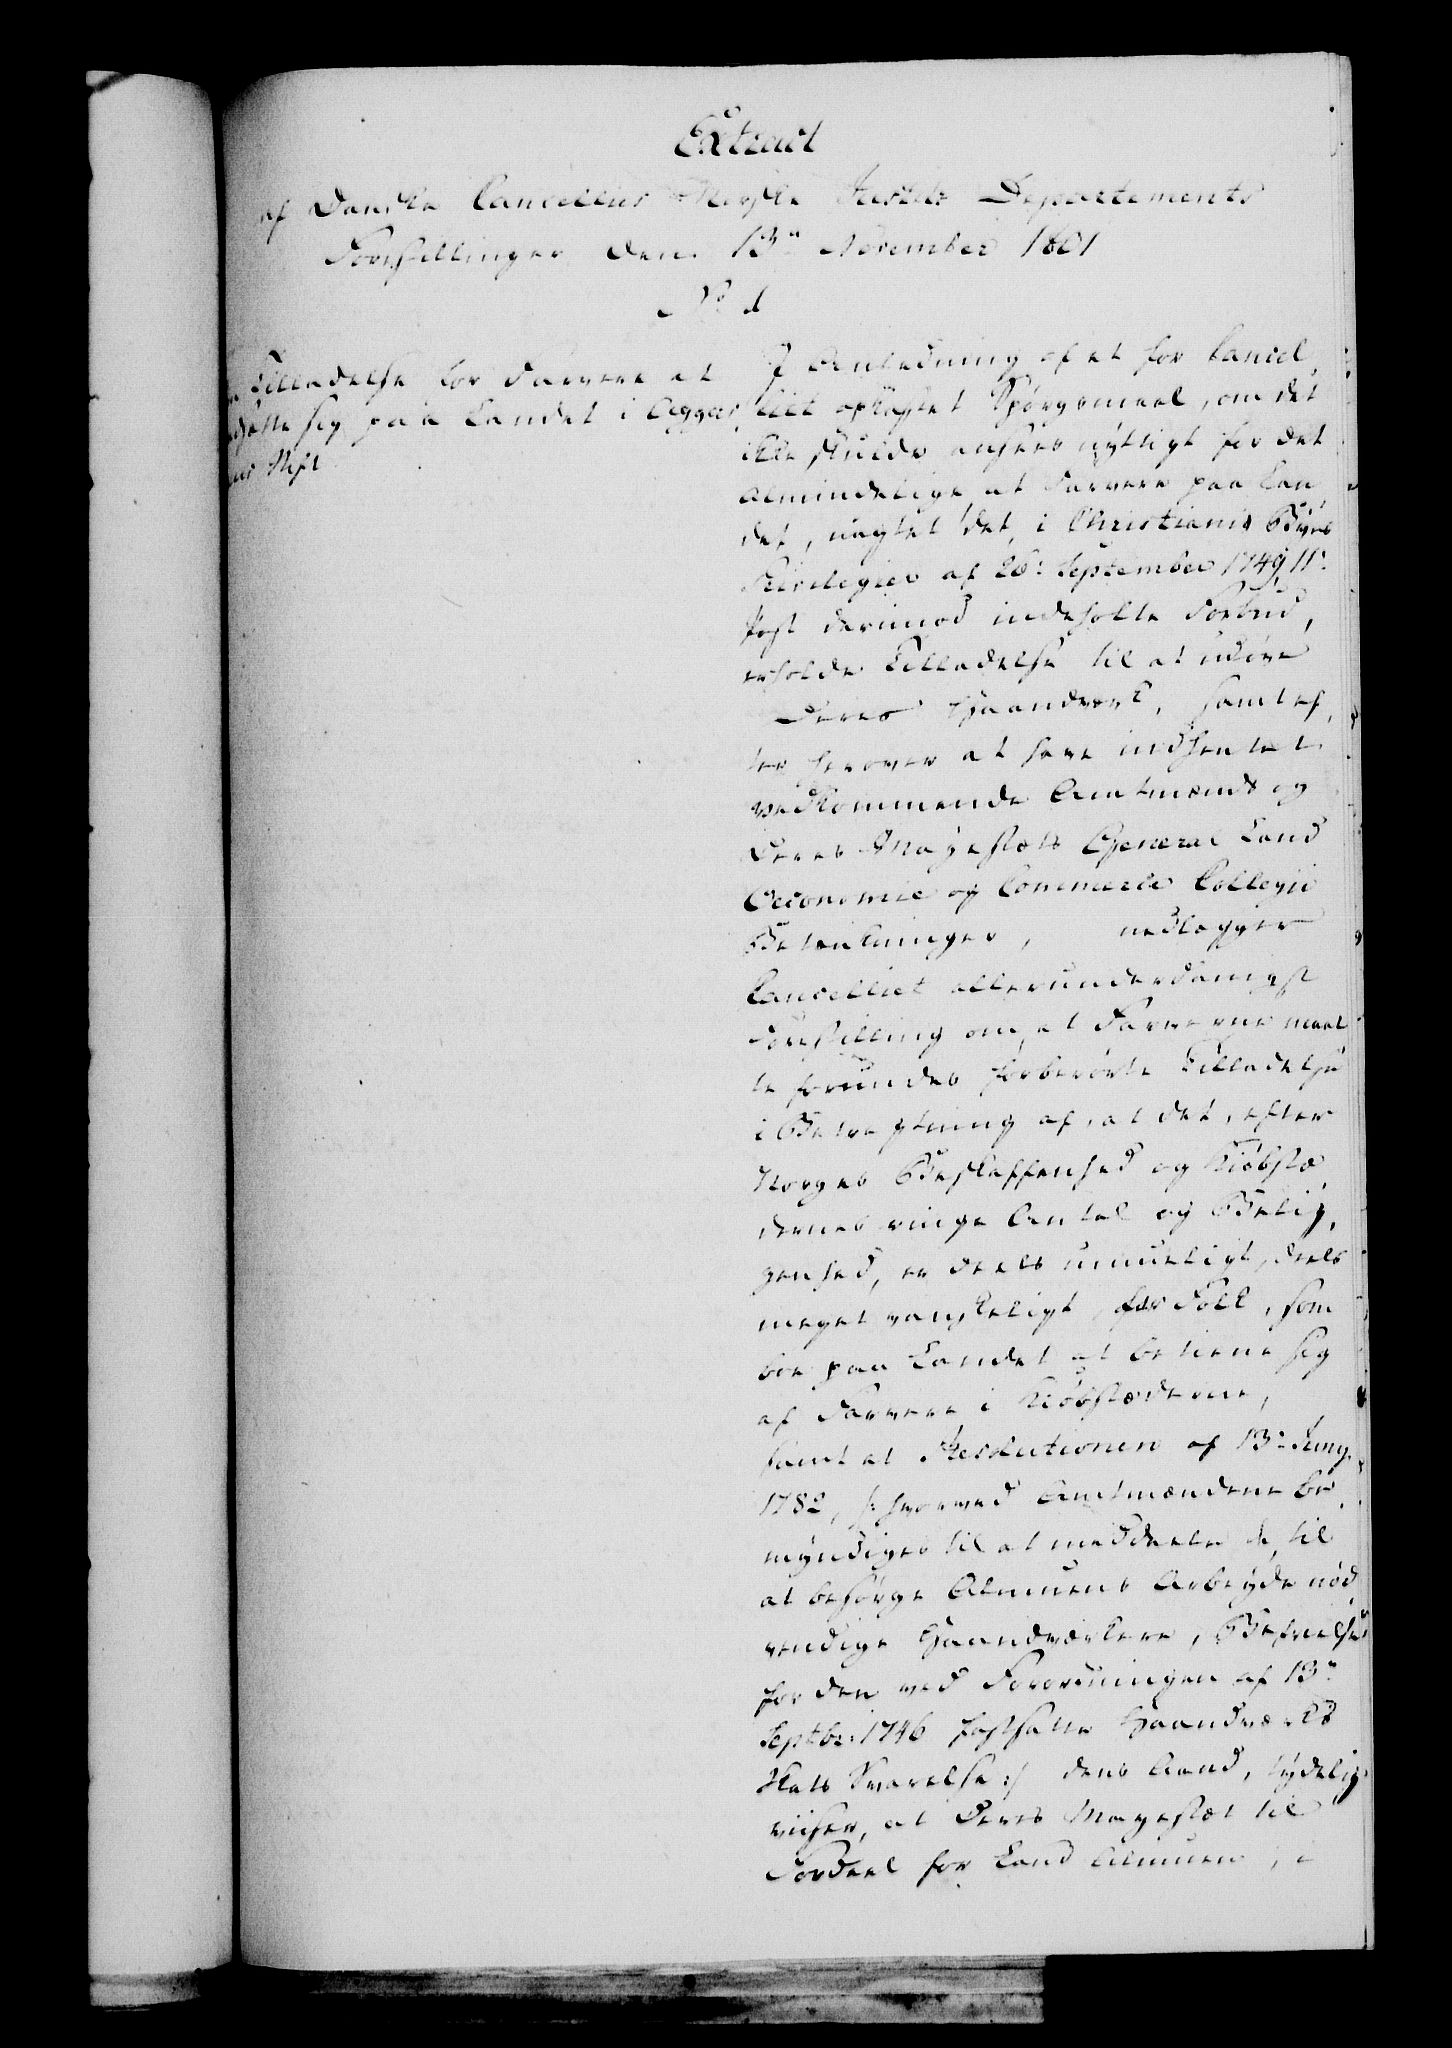 Extract
af Danske Cancellies Norske Justits Departements
Forestillinger den 13de November 1801
No 1
Tilladelse for Farvere at
sætte sig paa Landet i Agger
huus Stift
I Anledning af et for Cancel
liet opkastet Spørgsmaal, om det
ikke skulde ansees nyttigt for det
almindelige at Farvere paa Lan
det, uagtet det, i Christianiæ Byes
Privilegier af 26: September 1749 11:
Post derimod indeholte Forbud,
erholdt Tilladelse til at udøve
deres Haandverk, samt ef
ter herover at have indhentet
vedkommende Amtmænds og
Deres Mayestæts General Land
Oeconomie og Commerce Collegii
Betænkninger, nedlægger
Cancelliet allerunderdanigst
Forestilling om, at Farverne maat
te forundes forberørte Tilladelse
i Betragtning af, at det, efter
Norges Beskaffenhed og Kiøbstæ
dernes ringe Antal og Belig
genhed, er deels umueligt, deels
meget vanskeligt for Folk, som
boe paa Landet at betiene sig
af Farvere i Kiøbstæderne,
samt at Resolutionen af 13: Juny
1782, /: hvorved Amtmændene be
myndiges til at meddeele de, til
at besørge Almuens Arbeyde nød
vendige Haandværkere, Befrielse
for den ved Forordningen af 13de
Septbr: 1746 fastsatte Haandværks
Skats Svarelse :/ dens Aand, tydelig
viiser, at Deres Mayestæt til
Fordeel for Land Almuen, i